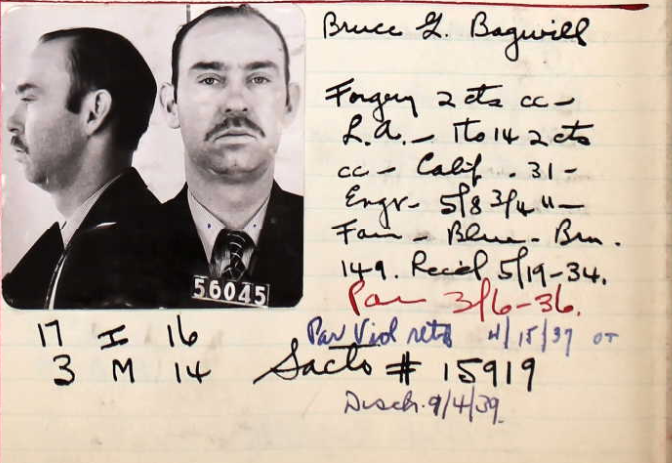 Bruce G. Bagwill
Forgery 2 cts cc –
L.A. – 1 to 14 2 cts
cc – Calif. 31 –
Engr – 5/8 3/4 " –
Fair – Blue – Brn.
149. Recd. 5/19-34.
Par 3/6-36.
56045
17 I 16 Par Viol retd 4/15/37 OT
3 M 14 Sacto # 15919
Disch. 9/4/39.